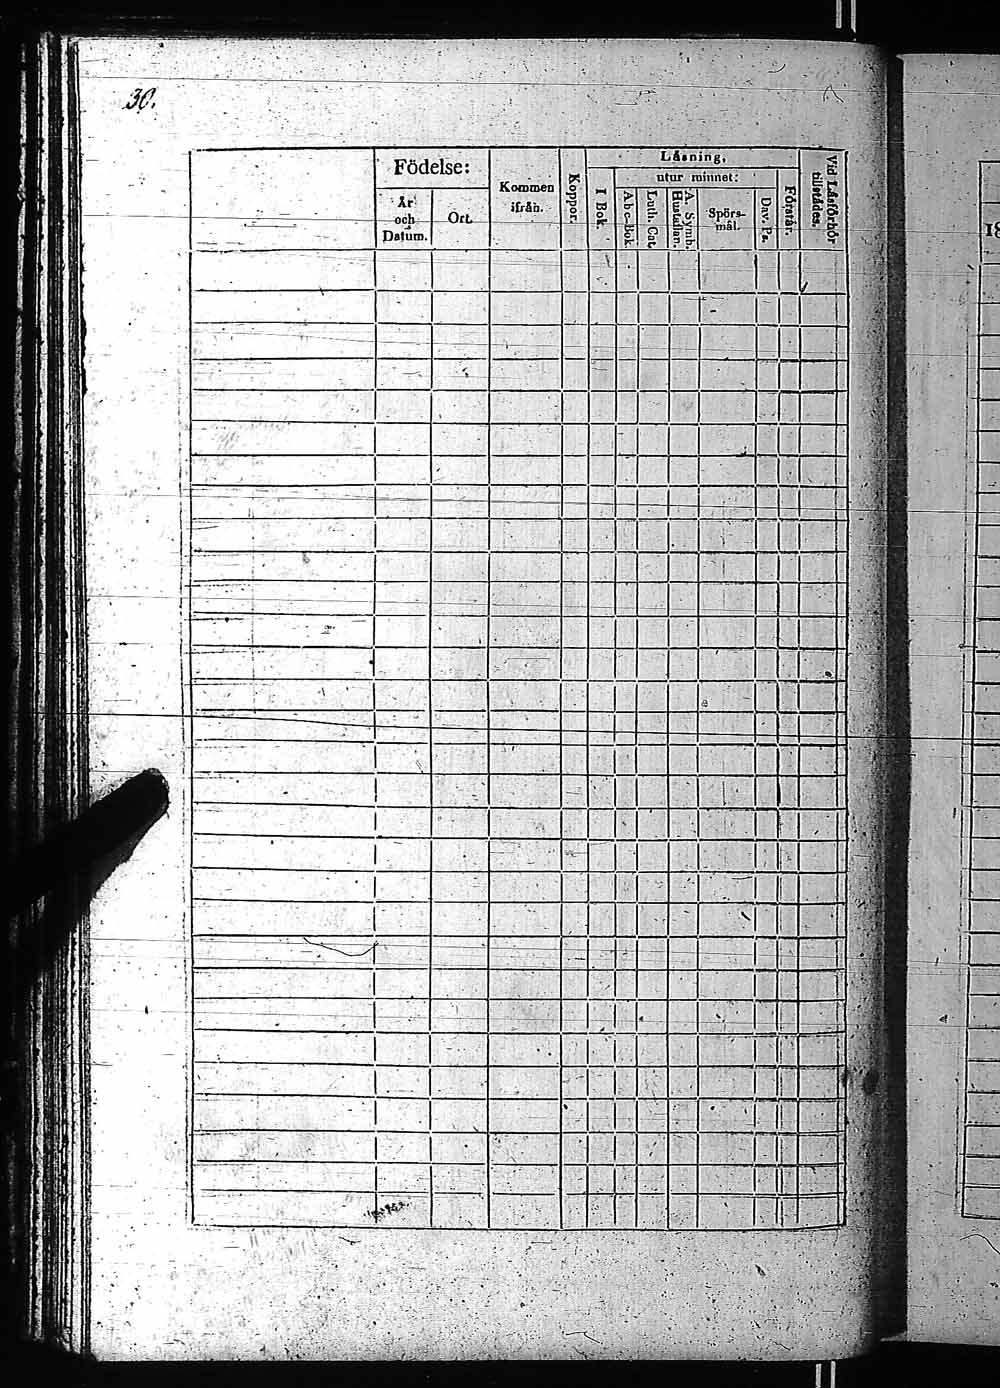 30.
Födelse:
År och Datum.
Ort.
Kommen ifrån.
Koppor.
Läsning,
I Bok.
utur minnet:
Abc-Bok
Luth. Cat.
A. Symb. Hustaflan.
Spörsmål.
Dav. Ps.
Förstår.
Vid Läsförhör tillstädes.
18